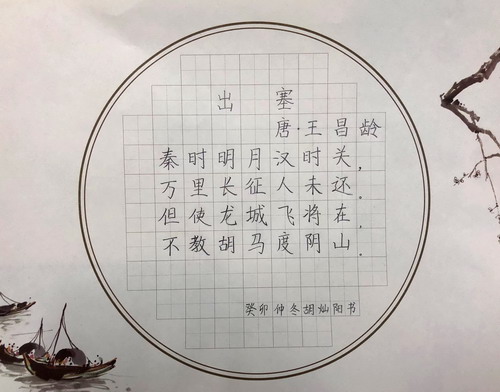 出塞
唐·王昌龄
秦时明月汉时关，
万里长征人未还。
但使龙城飞将在，
不教胡马度阴山。
癸卯仲冬胡灿阳书